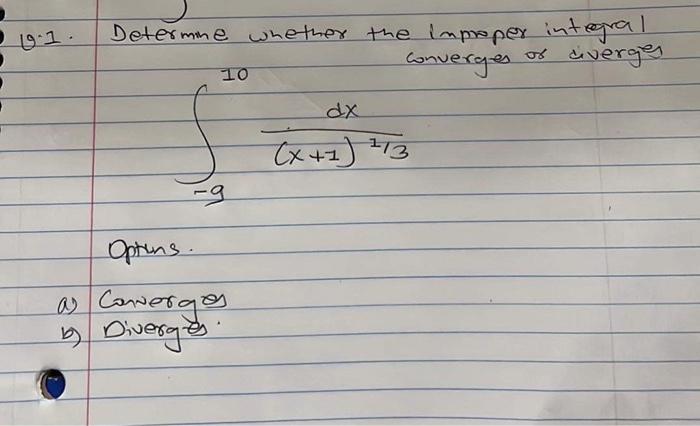 Q.1. Determine whether the Improper integral
converges or diverges
10
∫ dx
(x+1) 1/3
-9
Options.
a) Converges
b) Diverges.